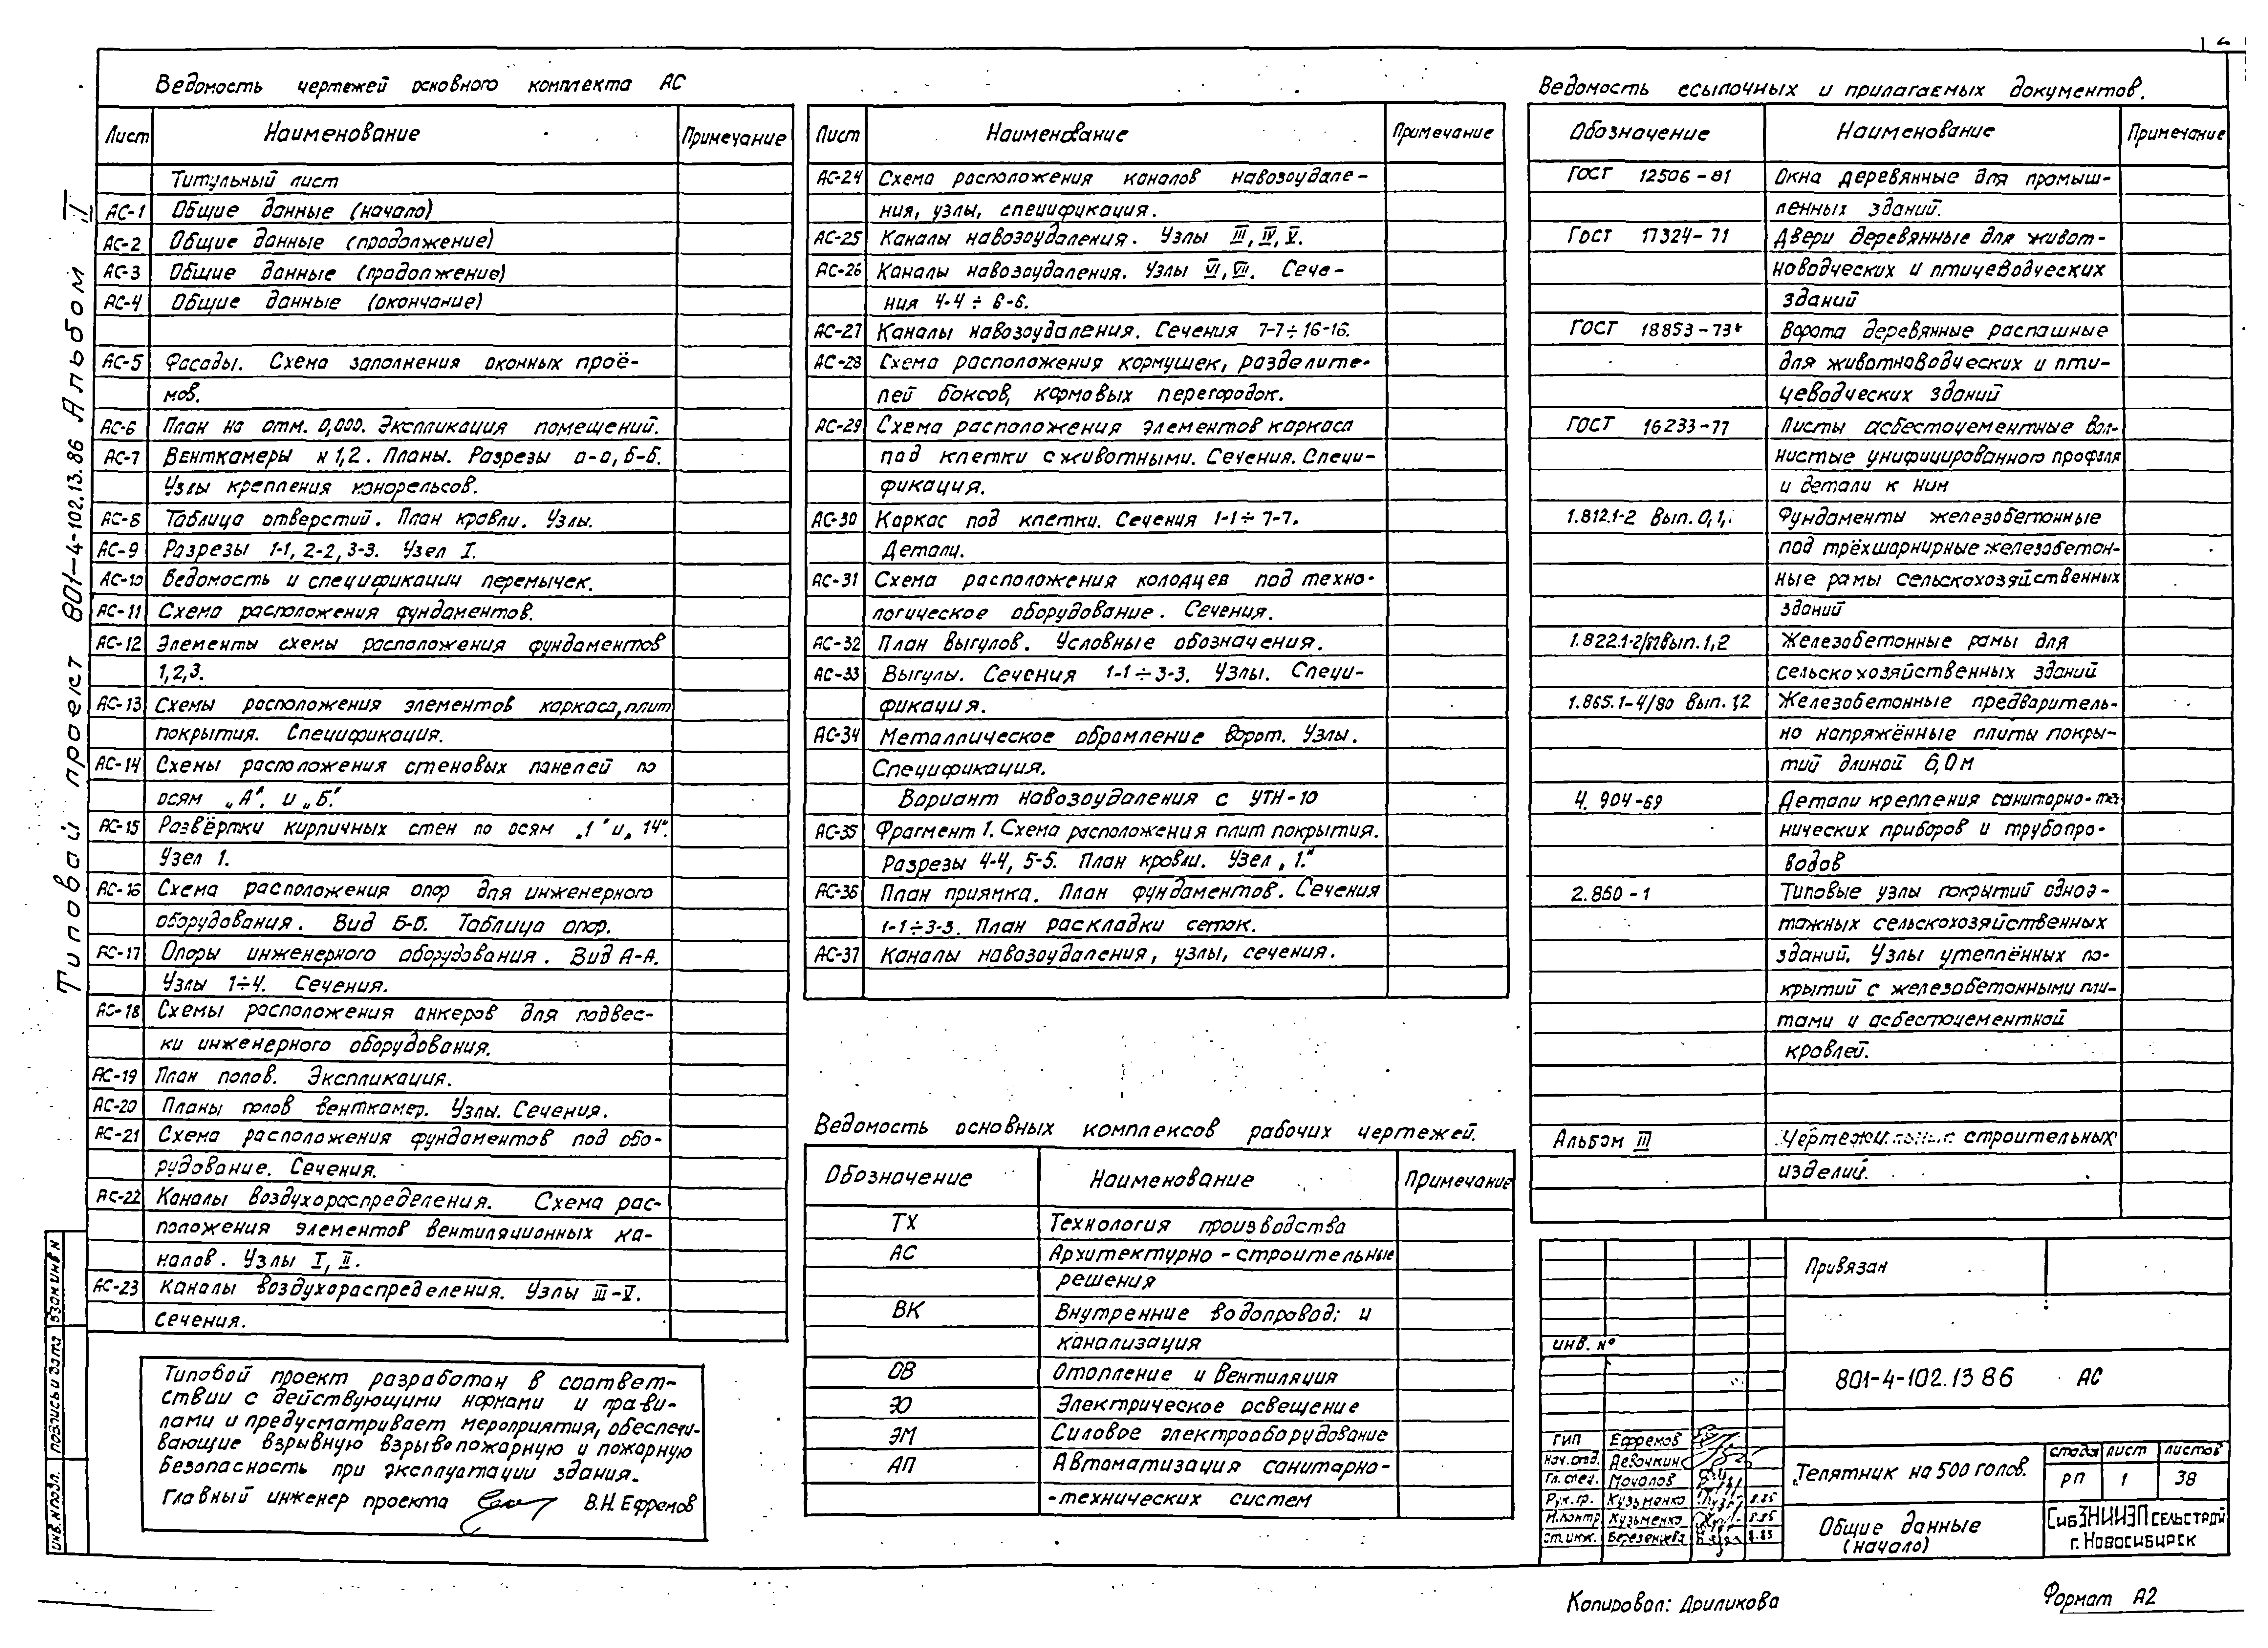 2
Типовой проект 801-4-102.13.86 Альбом I
Ведомость чертежей основного комплекта АС
Лист Наименование Примечание
Титульный лист
АС-1 Общие данные (начало)
АС-2 Общие данные (продолжение)
АС-3 Общие данные (продолжение)
АС-4 Общие данные (окончание)
АС-5 Фасады. Схема заполнения оконных проё-
мов.
АС-6 План на отм. 0,000. Экспликация помещений.
АС-7 Венткамеры N 1,2. Планы. Разрезы а-а, б-б.
Узлы крепления монорельсов.
АС-8 Таблица отверстий. План кровли. Узлы.
АС-9 Разрезы 1-1, 2-2, 3-3. Узел I.
АС-10 Ведомость и спецификации перемычек.
АС-11 Схема расположения фундаментов.
АС-12 Элементы схемы расположения фундаментов
1,2,3.
АС-13 Схемы расположения элементов каркаса, плит
покрытия. Спецификация.
АС-14 Схемы расположения стеновых панелей по
осям „А". и „Б".
АС-15 Развёртки кирпичных стен по осям „1" и „14".
Узел 1.
АС-16 Схема расположения опор для инженерного
оборудования. Вид Б-Б. Таблица опор.
АС-17 Опоры инженерного оборудования. Вид А-А.
Узлы 1÷4. Сечения.
АС-18 Схемы расположения анкеров для подвес-
ки инженерного оборудования.
АС-19 План полов. Экспликация.
АС-20 Планы полов венткамер. Узлы. Сечения.
АС-21 Схема расположения фундаментов под обо-
рудование. Сечения.
АС-22 Каналы воздухораспределения. Схема рас-
положения элементов вентиляционных ка-
налов. Узлы I, II.
АС-23 Каналы воздухораспределения. Узлы III-V.
Сечения.
Типовой проект разработан в соответ-
ствии с действующими нормами и прави-
лами и предусматривает мероприятия, обеспечи-
вающие взрывную взрывопожарную и пожарную
безопасность при эксплуатации здания.
Главный инженер проекта В.Н. Ефремов
Лист Наименование Примечание
АС-24 Схема расположения каналов навозоудале-
ния, узлы, спецификация.
АС-25 Каналы навозоудаления. Узлы III, IV, V.
АС-26 Каналы навозоудаления. Узлы VI, VII. Сече-
ния 4-4 ÷ 6-6.
АС-27 Каналы навозоудаления. Сечения 7-7÷16-16.
АС-28 Схема расположения кормушек, разделите-
лей боксов, кормовых перегородок.
АС-29 Схема расположения элементов каркаса
под клетки с животными. Сечения. Специ-
фикация.
АС-30 Каркас под клетки. Сечения 1-1÷7-7.
Детали.
АС-31 Схема расположения колодцев под техно-
логическое оборудование. Сечения.
АС-32 План выгулов. Условные обозначения.
АС-33 Выгулы. Сечения 1-1÷3-3. Узлы. Специ-
фикация.
АС-34 Металлическое обрамление ворот. Узлы.
Спецификация.
Вариант навозоудаления с УТН-10
АС-35 Фрагмент 1. Схема расположения плит покрытия.
Разрезы 4-4, 5-5. План кровли. Узел „1."
АС-36 План приямка. План фундаментов. Сечения
1-1÷3-3. План раскладки сеток.
АС-37 Каналы навозоудаления, узлы, сечения.
Ведомость основных комплексов рабочих чертежей.
Обозначение Наименование Примечание
ТХ Технология производства
АС Архитектурно-строительные
решения
ВК Внутренние водопровод и
канализация
ОВ Отопление и вентиляция
ЭО Электрическое освещение
ЭМ Силовое электрооборудование
АП Автоматизация санитарно-
-технических систем
Ведомость ссылочных и прилагаемых документов.
Обозначение Наименование Примечание
ГОСТ 12506-81 Окна деревянные для промыш-
ленных зданий.
ГОСТ 17324-71 Двери деревянные для живот-
новодческих и птицеводческих
зданий
ГОСТ 18853-73* Ворота деревянные распашные
для животноводческих и пти-
цеводческих зданий
ГОСТ 16233-77 Листы асбестоцементные вол-
нистые унифицированного профиля
и детали к ним
1.812.1-2 Вып. 0,1, Фундаменты железобетонные
под трёхшарнирные железобетон-
ные рамы сельскохозяйственных
зданий
1.822.1-2/82 вып. 1,2 Железобетонные рамы для
сельскохозяйственных зданий
1.865.1-4/80 Вып. 1,2 Железобетонные предваритель-
но напряжённые плиты покры-
тий длиной 6,0 м
4.904-69 Детали крепления санитарно-тех
нических приборов и трубопро-
водов
2.860-1 Типовые узлы покрытий одноэ-
тажных сельскохозяйственных
зданий. Узлы утеплённых по-
крытий с железобетонными пли-
тами и асбестоцементной
кровлей.
Альбом III строительных
изделий.
Привязан
инв. №
801-4-102.13 86 АС
ГИП Ефремов
Нач. отд. Девочкин
Гл. спец. Мочалов
Рук. гр. Кузьменко 8.85
Н.контр Кузьменко 8.85
Ст. инж. Березенцева 8.85
Телятник на 500 голов.
стадия лист листов
РП 1 38
Общие данные
(начало)
СибЗНИИЭПсельстрой
г. Новосибирск
Инв. N подл. Подпись и дата Взам инв N
Копировал: Дриликова Формат А2